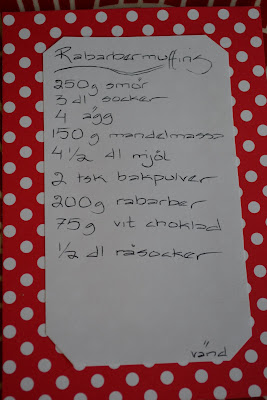 Rabarbermuffins
250g smör
3 dl socker
4 ägg
150g mandelmassa
4 1/2 dl mjöl
2 tsk bakpulver
200g rabarber
75g vit choklad
1/2 dl råsocker
vänd